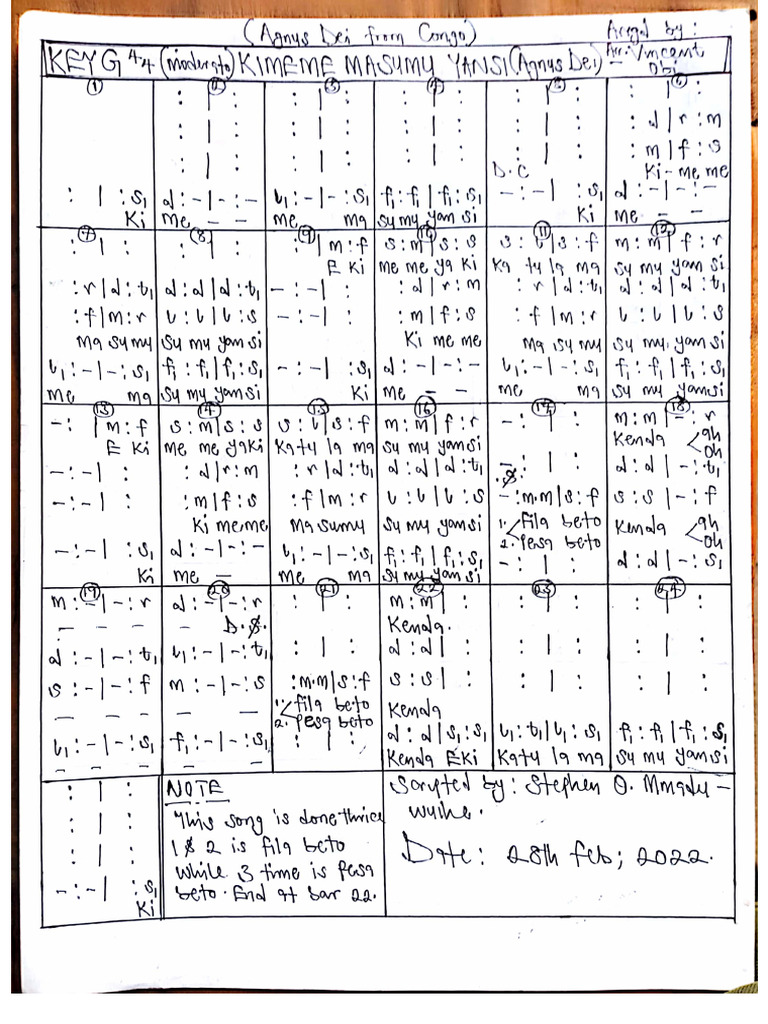 (Agnus Dei from Congo)
Arrgd by:
KEY G 4/4 (moderato) KIMEME MASUMU YANSI (Agnus Dei)
Vincent
Obi
1 2 3 4 5 6
: | : : | : : | : : | : : | :
: | : : | : : | : : | : : d | r : m
: | : : | : : | : : | : : m | f : s
D.C Ki - me me
: | : s₁ d : - | - : - l₁ : - | - : s₁ f₁ : f₁ | f₁ : s₁ - : - | : s₁ d : - | - : -
Ki me - - me ma su my yam si Ki me - -
7 8 9 10 11 12
: | : : | : : | m : f s : m | s : s s : l | s : f m : m | f : r
E Ki me me ya Ki Ka ty la ma sy my yam si
: r | d : t₁ d : d | d : t₁ - : - | : : d | r : m : r | d : t₁ d : d | d : t₁
: f | m : r l : l | l : s - : - | : : m | f : s : f | m : r l : l | l : s
ma su my su my yam si Ki me me ma su my su my yam si
l₁ : - | - : s₁ f₁ : f₁ | f₁ : s₁ - : - | : s₁ d : - | - : - l₁ : - | - : s₁ f₁ : f₁ | f₁ : s₁
me ma su my yam si Ki me - - me ma su my yam si
13 14 15 16 17 18
- : | m : f s : m | s : s s : l | s : f m : m | f : r - : | : m : m | - : r
E Ki me me ya ki Ka ty la ma su my yam si Kenda ah oh
- : - | : : d | r : m : r | d : t₁ d : d | d : t₁ - : | : d : d | - : t₁
.$.
- : - | : : m | f : s : f | m : r l : l | l : s - : m.m | s : f s : s | - : f
Ki me me ma su my su my yam si 1. fila beto Kenda ah oh
2. pesa beto
- : - | : s₁ d : - | - : - l₁ : - | - : s₁ f₁ : f₁ | f₁ : s₁ - : | : d : d | - : s₁
Ki me - me ma su my yam si
19 20 21 22 23 24
m : - | - : r d : - | - : r : | : m : m | : : | : : | :
- - - - D.$. Kenda.
d : - | - : t₁ l₁ : - | - : t₁ : | : d : d | : : | : : | :
s : - | - : f m : - | - : s : m.m | s : f s : s | : : | : : | :
- - - - - - 1. fila beto Kenda
2. pesa beto
l₁ : - | - : s₁ f₁ : - | - : s₁ : | : d : d | s₁ : s₁ l₁ : t₁ | l₁ : s₁ f₁ : f₁ | f₁ : s₁
- - - - - - - Kenda E Ki Katy la ma su my yam si
: | :
: | :
: | :
- : - | : s₁
Ki
NOTE
This song is done thrice
1 $ 2 is fila beto
while 3 time is pesa
beto. End at bar 22.
Scripted by: Stephen O. Mmadu-
wuihe.
Date: 28th Feb; 2022.